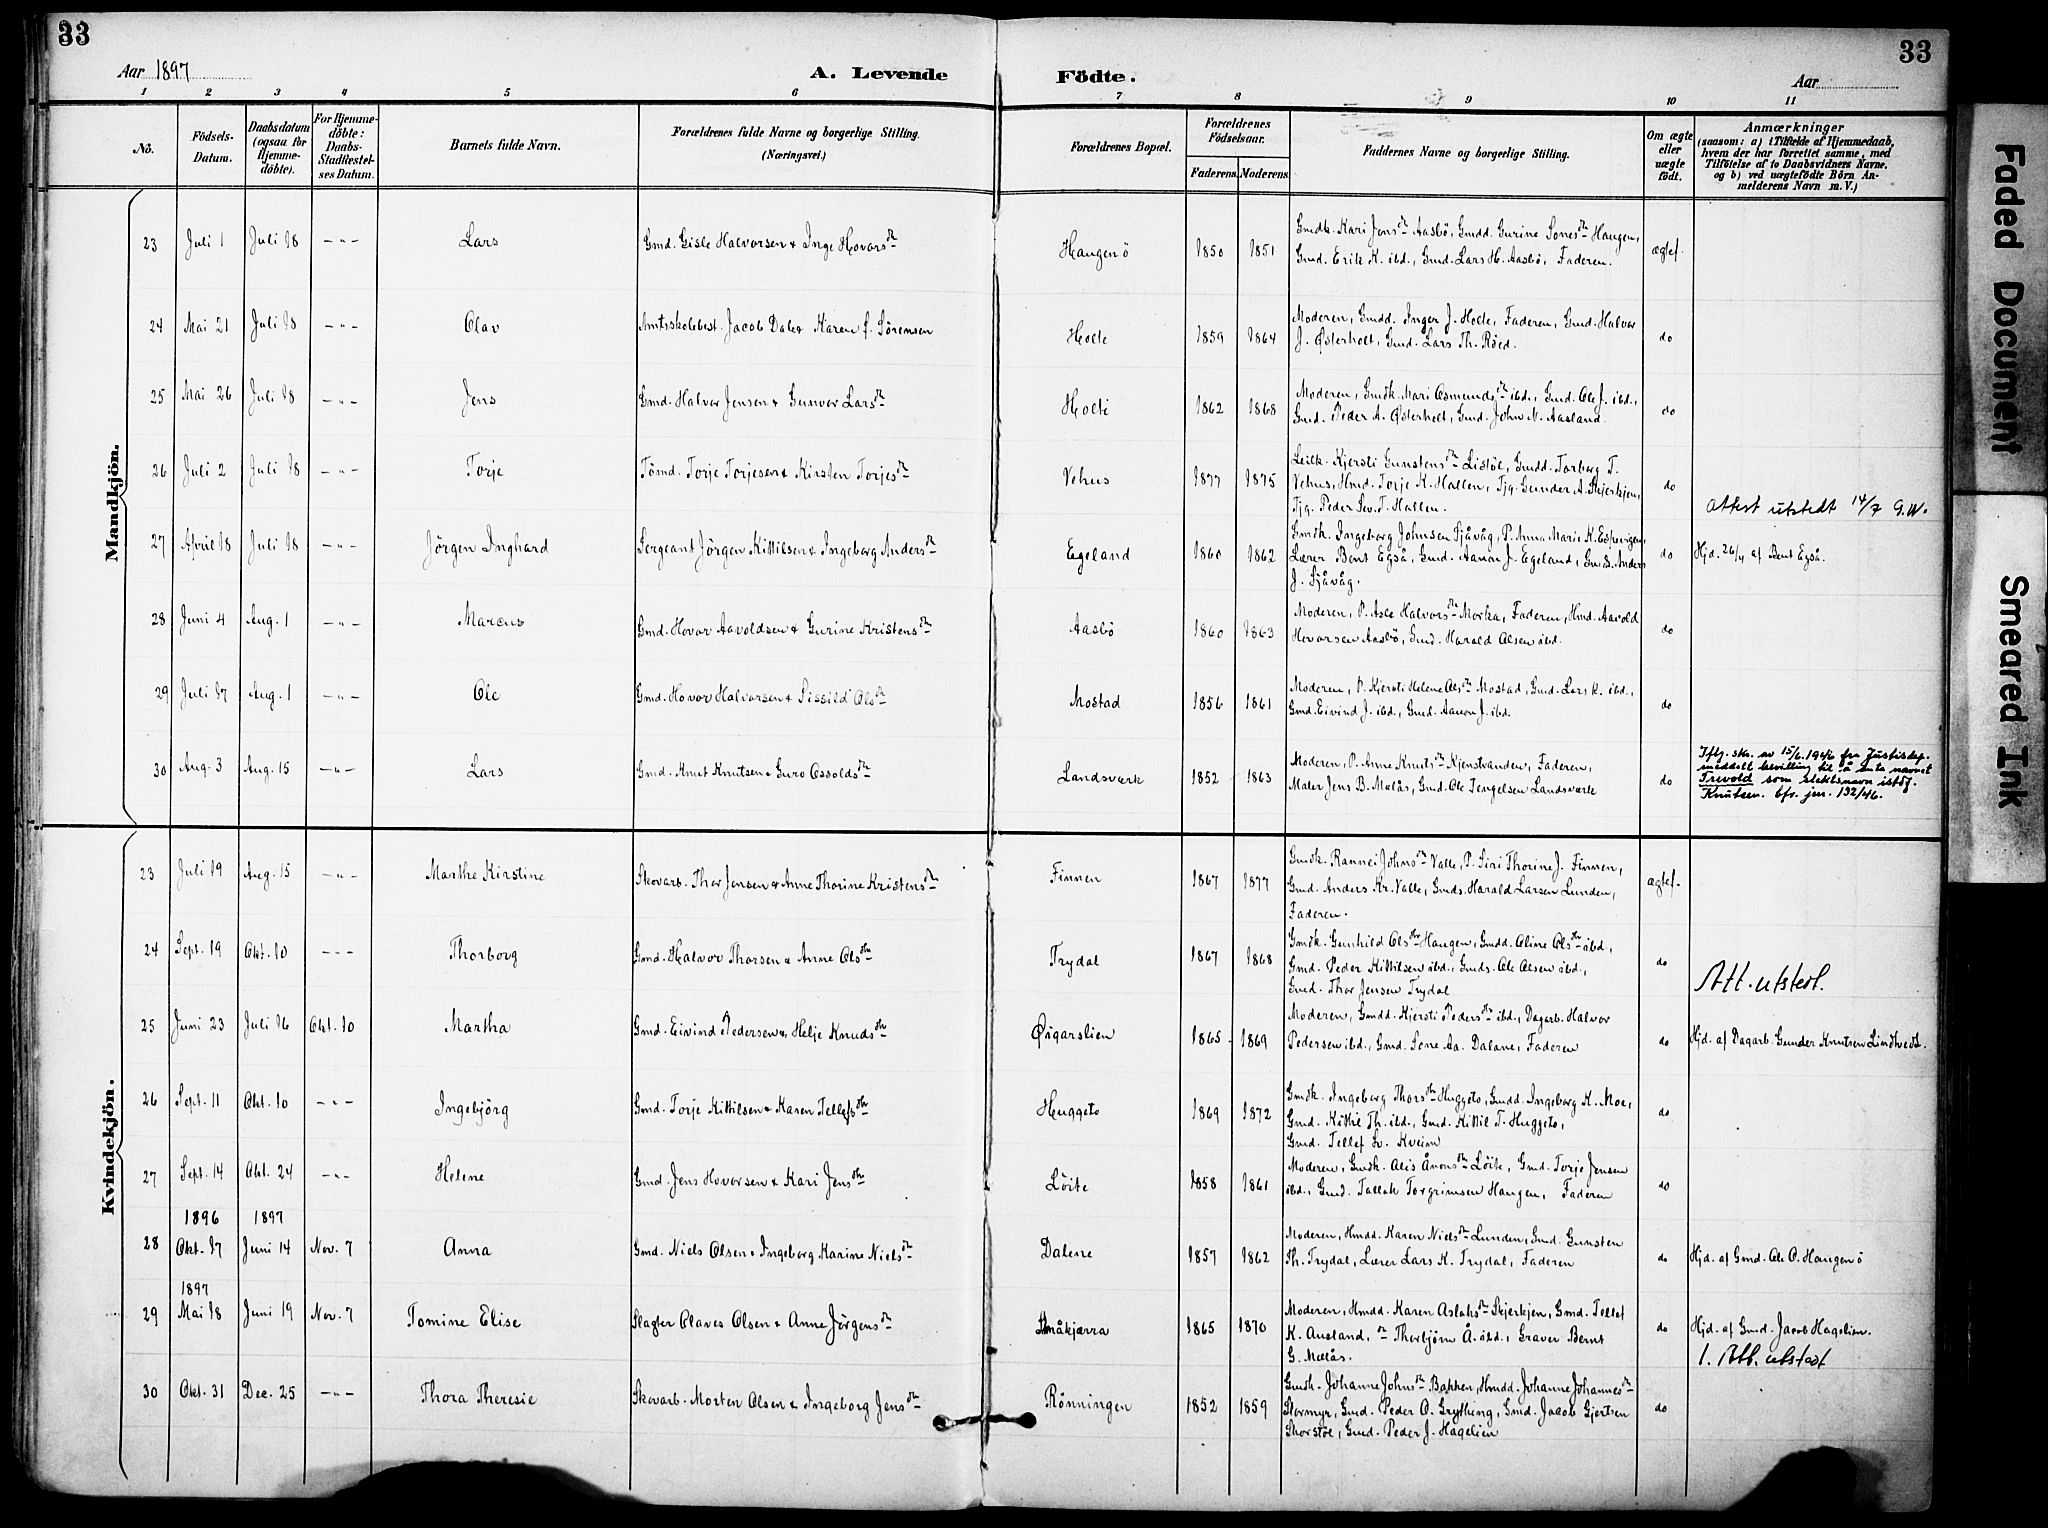 33
33
Aar 1897
A. Levende Födte.
Aar
1 2 3 4 5 6 7 8 9 10 11
No.
Födsels-Datum.
Daabsdatum (ogsaa for Hjemmedöbte).
For Hjemmedöbte: Daabs-Stadfæstelses Datum.
Barnets fulde Navn.
Forældrenes fulde Navne og borgerlige Stilling. (Næringsvei.)
Forældrenes Bopæl.
Forældrenes Födselsaar.
Faderens. Moderens.
Faddernes Navne og borgerlige Stilling.
Om ægte eller uægte födt.
Anmærkninger
(saasom: a) i Tilfælde af Hjemmedaab, hvem der har forrettet samme, med Tilföielse af to Daabsvidners Navne, og b) ved uægtefödte Börn Anmelderens Navn m. V.)
Mandkjön.
23 Juli 1 Juli 18 -"- Lars Gmd. Gisle Halvorsen & Inge Hovorsdtr Haugenö 1850 1851 Gmdk. Kari Jensdtr Aasbö, Gmdd. Gurine Sonesdtr Haugen, ægtef.
Gmd. Erik K. ibd., Gmd. Lars H. Aasbö, Faderen.
24 Mai 21 Juli 18 -"- Olav Amtsskolebest. Jacob Dale & Karen f. Sörensen Holte 1859 1864 Moderen, Gmdd. Inger J. Holte, Faderen, Gmd. Halvor do
J. Østerholt, Gmd. Lars Th. Röed.
25 Mai 26 Juli 18 -"- Jens Gmd. Halvor Jensen & Gunvor Larsdtr Holti 1862 1868 Moderen, Gmdk. Mari Osmundsdtr ibd., Gmd. Ole J. ibd., do
Gmd. Peder A. Østerholt, Gmd. John N. Aasland.
26 Juli 2 Juli 18 -"- Torje Tömd. Torje Torjesen & Kirsten Torjesdtr Vehus 1877 1875 Leilk. Kjersti Gunstensdtr Listöl, Gmdd. Torborg T. do
Vehus, Hmd. Torje K. Hallen, Tjg. Gunder A. Skjerkjen,
Tjg. Peder Sev. T. Hallen.
Attest utstedt 14/7 G.W.
27 April 18 Juli 18 -"- Jörgen Inghard Sergeant Jörgen Kittilsen & Ingeborg Andersdtr Egeland 1860 1862 Gmdk. Ingeborg Johnsen Sjåvåg, P. Anna Marie K. Espevigen, do Hjd. 26/4 af Bent Egså.
Lærer Bent Egså, Gmd. Aanon J. Egeland, Gmds. Anders
J. Sjåvåg.
28 Juni 4 Aug. 1 -"- Marcus Gmd. Hovor Aavoldsen & Gurine Kristensdtr Aasbö 1860 1863 Moderen, P. Asle Halvorsdtr Morka, Faderen, Hmd. Aavold do
Hovorsen Aasbö, Gmd. Harald Olsen ibd.
29 Juli 17 Aug. 1 -"- Ole Gmd. Hovor Halvorsen & Sissild Olsdtr Mostad 1856 1861 Moderen, P. Kjersti Helene Olsdtr Mostad, Gmd. Lars K. ibd., do
Gmd. Eivind J. ibd., Gmd. Aanon J. ibd.
30 Aug. 3 Aug. 15 -"- Lars Gmd. Knut Knutsen & Guro Ossoldsdtr Landsverk 1852 1863 Moderen, P. Anne Knutsdtr Kjenstranden, Faderen, do
Maler Jens B. Mælås, Gmd. Ole Tengelsen Landsverk
Iflg. skr. av 15/6.1946 fra Justisdep.
meddelt bevilling til å anta navnet
Trevold som slektsnavn istdf.
Knutsen. Cfr. jnr. 192/46.
Kvindekjön.
23 Juli 19 Aug. 15 -"- Marthe Kirstine Skovarb. Thor Jensen & Anne Thorine Kristensdtr Finnen 1867 1877 Gmdk. Rannei Johnsdtr Valle, P. Siri Thorine J. Finnen, ægtef.
Gmd. Anders Kr. Valle, Gmds. Harald Larsen Lunden,
Faderen.
24 Sept. 19 Okt. 10 -"- Thorborg Gmd. Halvor Thorsen & Anne Olsdtr Trydal 1867 1868 Gmdk. Gunhild Olsdtr Haugen, Gmdd. Oline Olsdtr ibd., do
Gmd. Peder Kittilsen ibd., Gmds. Ole Olsen ibd.,
Gmd. Thor Jensen Trydal
Att. utsted.
25 Juni 23 Juli 16 Okt. 10 Martha Gmd. Eivind Pedersen & Helje Knudsdtr Øigarslien 1865 1869 Moderen, Gmdd. Kjersti Pedersdtr ibd., Dagarb. Halvor do Hjd. af Dagarb. Gunder Knutsen Lindtvedt.
Pedersen ibd., Gmd. Sone Aa. Dalane, Faderen
26 Sept. 11 Okt. 10 -"- Ingebjörg Gmd. Torje Kittilsen & Karen Tellefsdtr Huggeto 1869 1872 Gmdk. Ingeborg Thorsdtr Huggeto, Gmdd. Ingeborg K. Moe, do
Gmd. Kittil Th. ibd., Gmd. Kittil T. Huggeto,
Gmd. Tellef Sv. Kveim
27 Sept. 14 Okt. 24 -"- Helene Gmd. Jens Hovorsen & Kari Jensdtr Löite 1858 1861 Moderen, Gmdk. Alis Ånonsdtr Löite, Gmd. Torje Jensen do
ibd., Gmd. Tallak Torgrimsen Haugen, Faderen
1896 1897
28 Okt. 17 Juni 14 Nov. 7 Anna Gmd. Niels Olsen & Ingeborg Karine Nielsdtr Dalene 1857 1862 Moderen, Hmdd. Karen Nielsdtr Lunden, Gmd. Gunsten do Hjd. af Gmd. Ole O. Haugenö
Th. Trydal, Lærer Lars K. Trydal, Faderen
1897
29 Mai 18 Juni 19 Nov. 7 Tomine Elise Slagter Olaves Olsen & Anne Jörgensdtr Småkjærra 1865 1870 Moderen, Hmdd. Karen Aslaksdtr Skjerkjen, Gmd. Tellef do Hjd. af Gmd. Jacob Hagelien.
K. Ausland, dtr Thorbjörn Å. ibd., Graver Bernt
G. Mælås.
1. Att. utstedt
30 Okt. 31 Dec. 25 -"- Thora Theresie Skovarb. Morten Olsen & Ingeborg Jensdtr Rönningen 1852 1859 Gmdk. Johanne Johnsdtr Bakken, Hmdd. Johanne Johannesdtr do
Stormyr, Gmd. Peder O. Grytting, Gmd. Jacob Gjertsen
Skorstöl, Gmd. Peder J. Hagelien
Faded Document
Smeared Ink